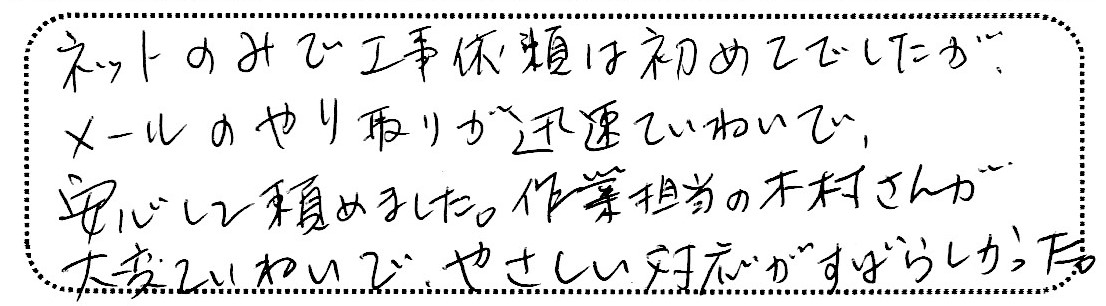 ネットのみで工事依頼は初めてでしたが、
メールのやり取りが迅速ていねいで、
安心して頼めました。作業担当の木村さんが
大変ていねいで、やさしい対応がすばらしかった。